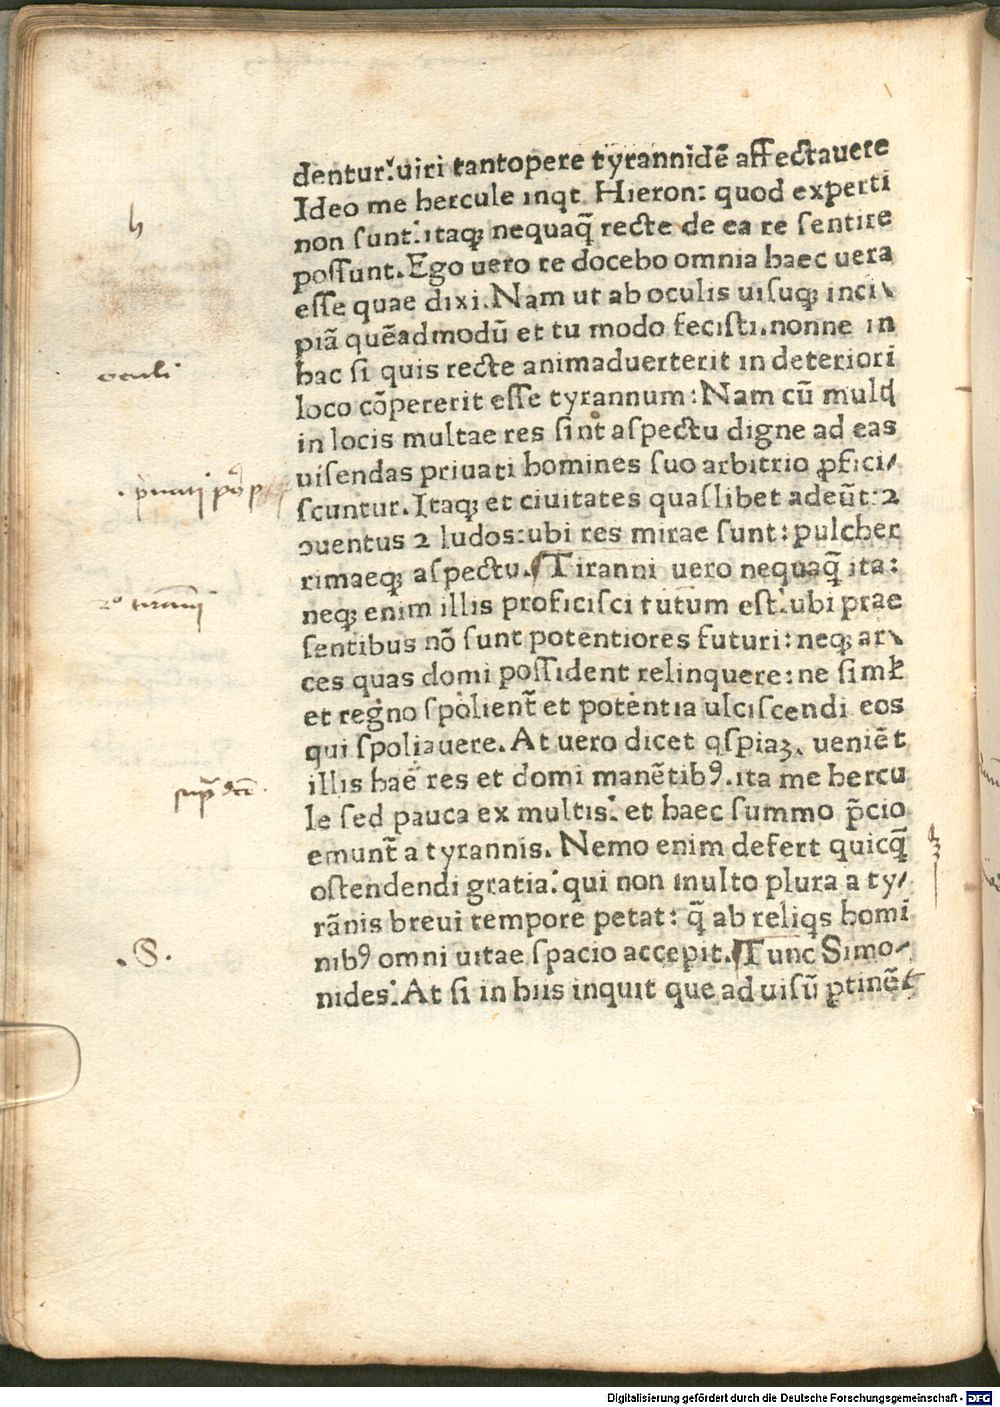 dentur: uiri tantopere tyrannidē affectauere
Ideo me hercule inqt Hieron: quod experti
non sunt: itaqꝫ nequaq̃ recte de ea re sentire
possunt. Ego uero te docebo omnia haec uera
esse quae dixi. Nam ut ab oculis uisuqꝫ inci
piā quēadmodū et tu modo fecisti. nonne in
hac si quis recte animaduerterit in deteriori
loco cōpererit esse tyrannum: Nam cū mul
in locis multae res sint aspectu digne ad eas
uisendas priuati homines suo arbitrio ꝓfici/
scuntur. Itaqꝫ et ciuitates quaslibet adeūt: 2
ↄuentus 2 ludos: ubi res mirae sunt: pulcher
rimaeqꝫ aspectu. Tiranni uero nequaq̃ ita:
neqꝫ enim illis proficisci tutum est: ubi prae
sentibus nō sunt potentiores futuri: neqꝫ ar
ces quas domi possident relinquere: ne siml
et regno spolient̃ et potentia ulciscendi eos
qui spoliauere. At uero dicet qspiaꝫ. ueniēt
illis hae res et domi manētibꝰ. ita me hercu
le sed pauca ex multis: et haec summo p̄cio
emunt̃ a tyrannis. Nemo enim defert quicq̃
ostendendi gratia: qui non multo plura a ty/
rānis breui tempore petat: q̃ ab reliqs homi
nibꝰ omni uitae spacio accepit. Tunc Simo
nides: At si in hiis inquit que ad uisū ꝑtinēt
h
oculi
S.
Digitalisierung gefördert durch die Deutsche Forschungsgemeinschaft - DFG